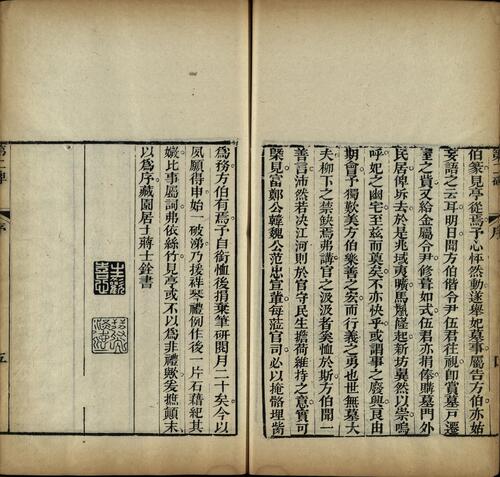 伯篆見亭從焉予心怦然動遂舉妃墓事屬告方伯亦始
妄語之云耳明日聞方伯偕令尹伍君往視卽賞墓戸遷
室之貲又給金屬令尹修葺如式伍君亦捐俸購墓門外
民居俾拆去於是兆域夷曠馬鬛隆起新坊翼然以崇嗚
呼妃之幽宅至兹而奠矣不亦快乎或謂事之廢興良由
期會予獨歎美方伯樂善之宏而行義之勇也世無墓大
夫柳下之禁缺焉弗講官之汲汲者奚恤於斯方伯聞一
善言沛然若決江河則於官守民生擔荷維持之意實可
槩見富鄭公韓魏公范忠宣輩每蒞官司必以掩骼埋胔
爲務方伯有焉予自銜恤後捐棄筆硏閱月二十矣今以
夙願得申始一破涕乃援祥琴禮例作後一片石雜紀其
比事屬詞弗依絲竹見亭或不以爲非禮歟爰摭顚末
以爲序藏園居士蔣士銓書
第二碑 序 五